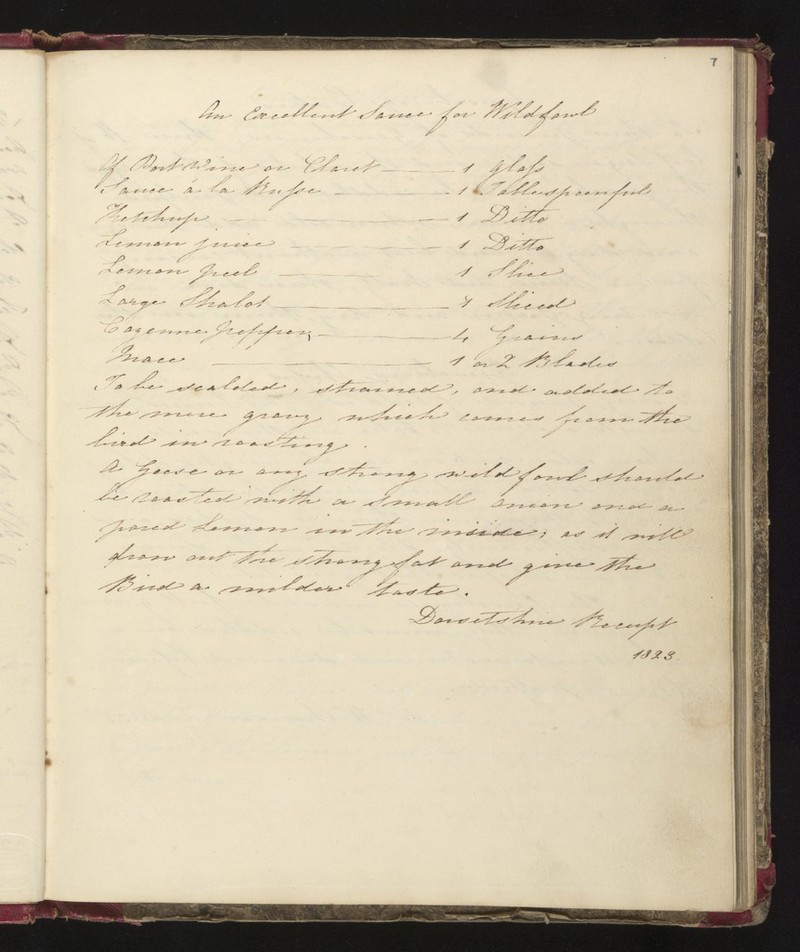 7
An Excellent Sauce for Wild fowl
Of Port Wine or Claret — 1 Glass
Sauce a la Russe — 1 Tablespoonful
Ketchup — 1 Ditto
Lemon juice — 1 Ditto
Lemon peel — 1 Slice
Large Shalot — 1 Sliced
Cayenne Pepper — 4 Grains
Mace — 1 or 2 Blades
To be scalded, strained, and added to
the mere gravy which comes from the
bird in roasting.
A Goose or any strong wild fowl should
be roasted with a small onion and a
pared Lemon in the inside; as it will
draw out the strong fat and give the
Bird a milder taste.
Dorsetshire Receipt
1823